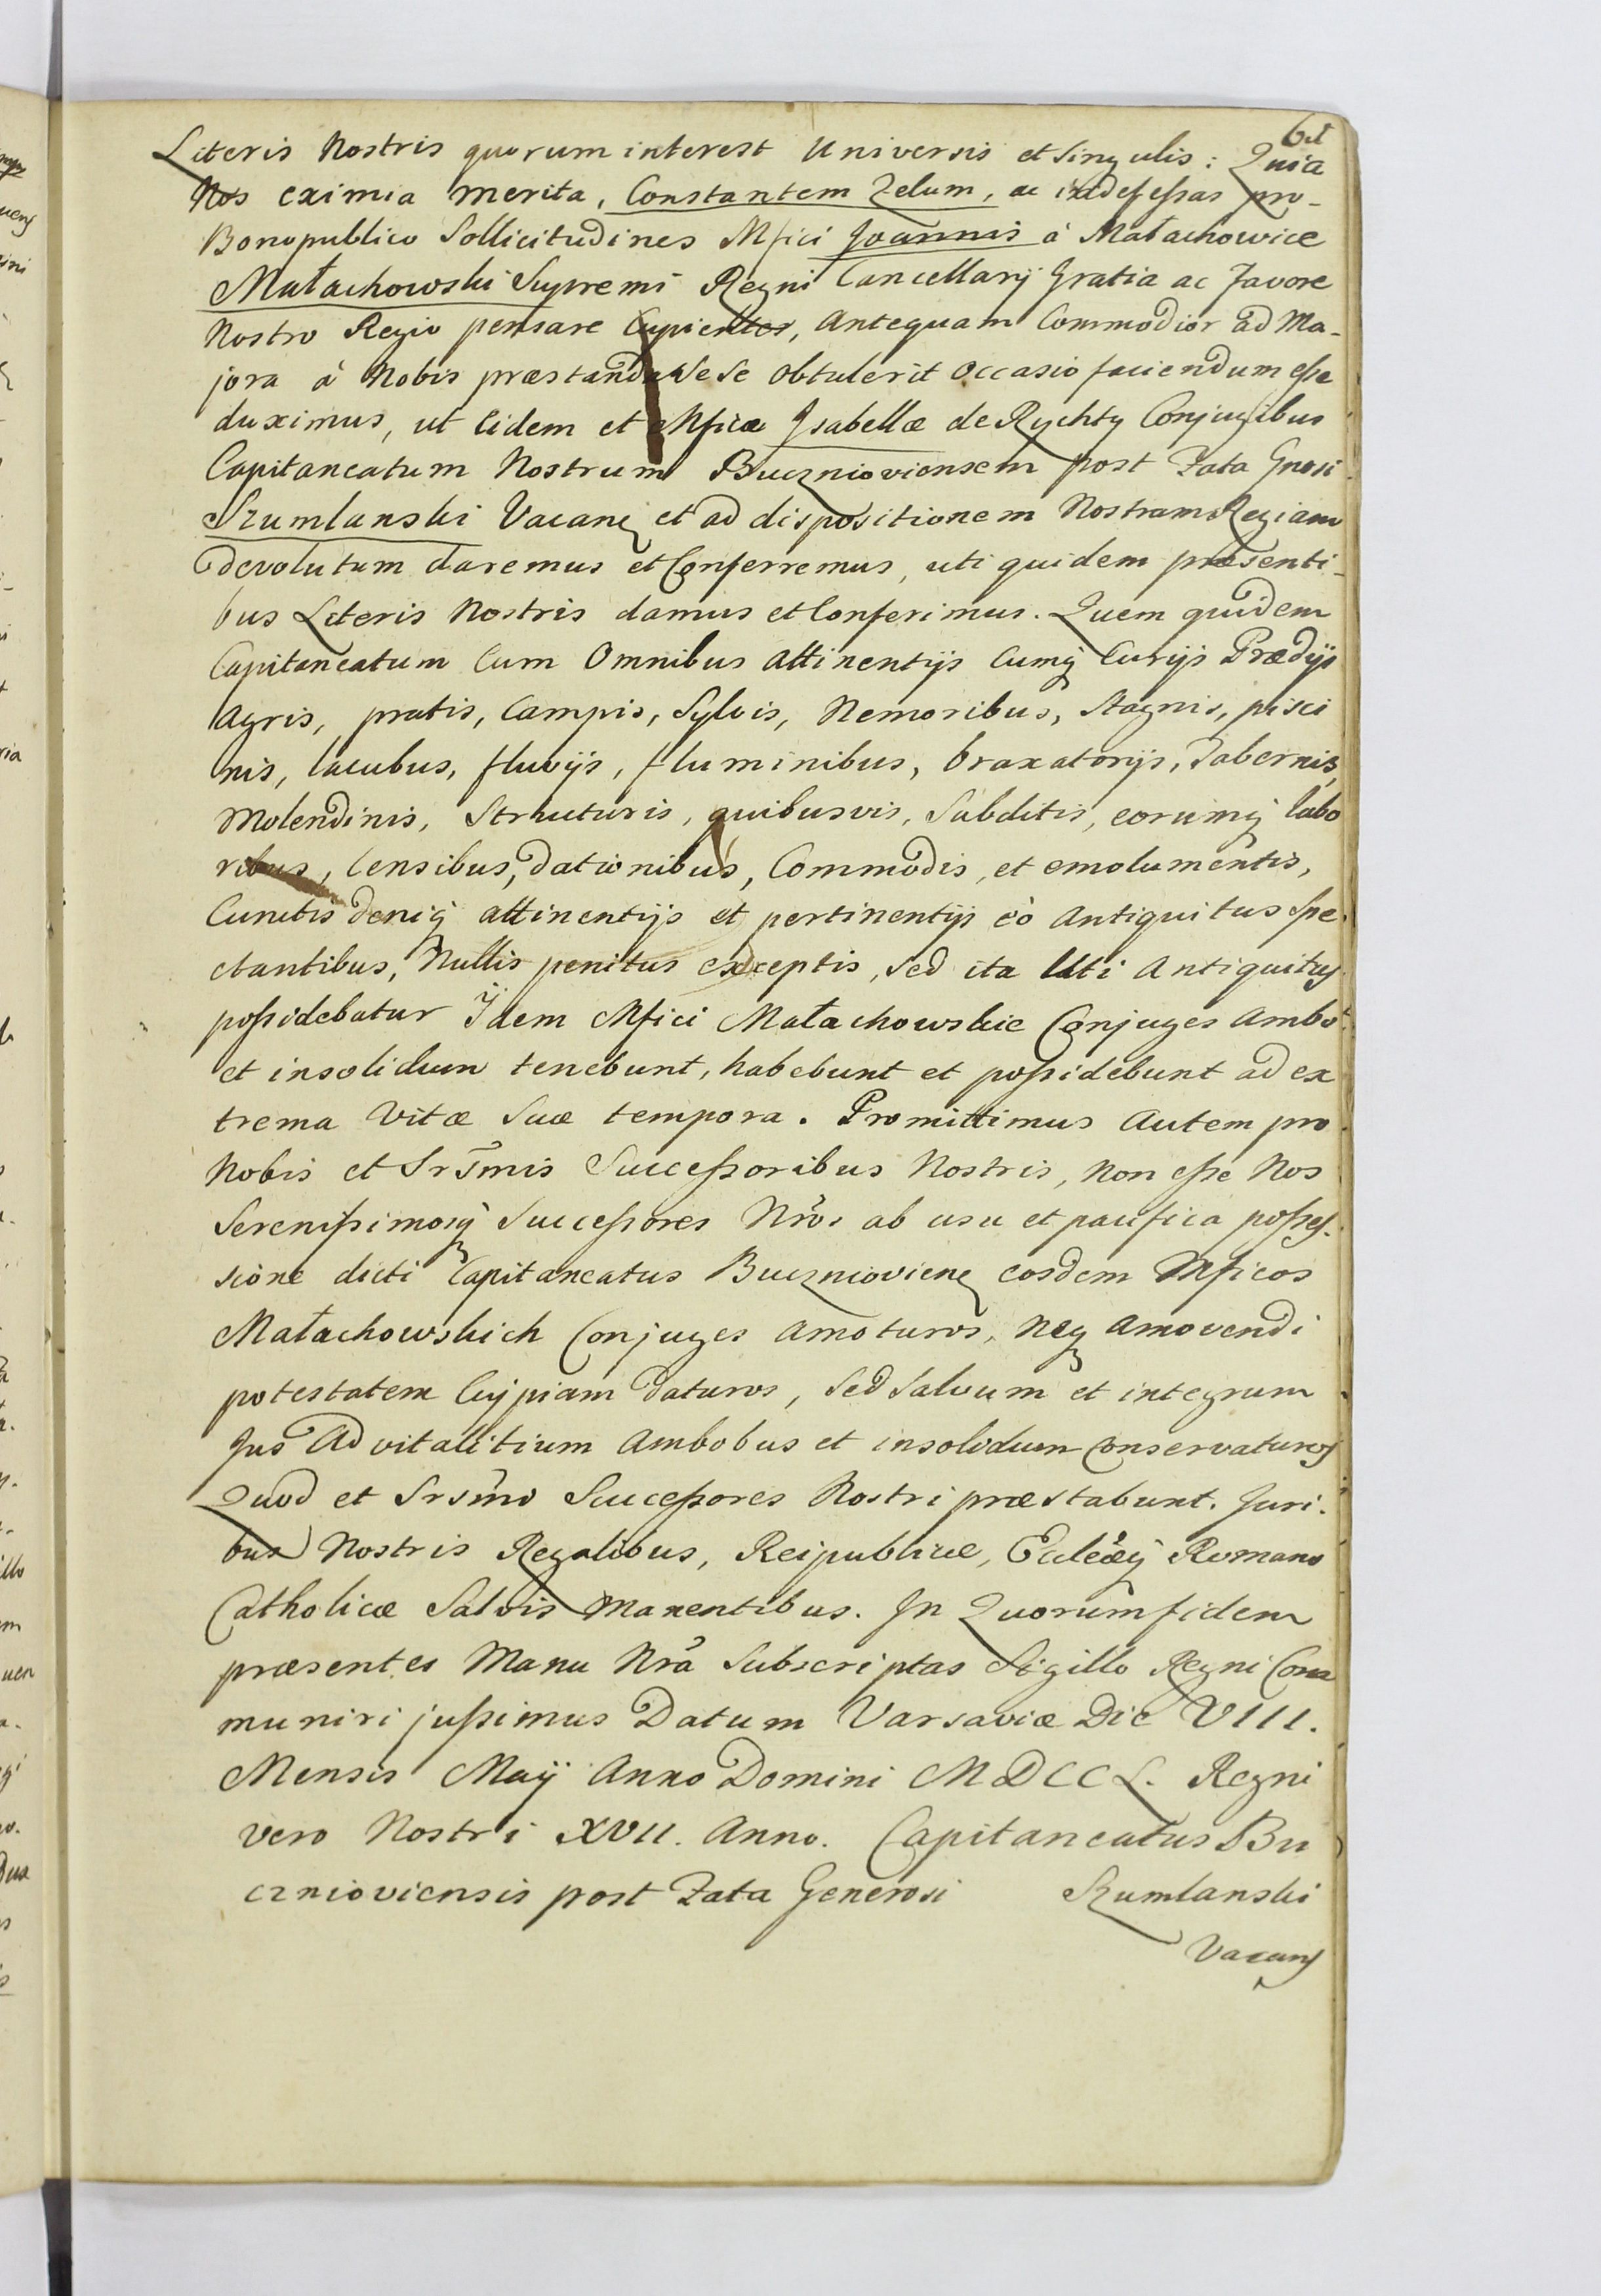 Literis Nostris quorum interest Universis et Singulis: Quia
Nos eximia merita, Constantem Zelum, ac indefeßas pro-
Bonopublico Sollicitudines Mfici Joannis à Małachowice
Małachowski Supremi Regni Cancellarij Gratia ac Favore
Nostro Regio pensare Cupientes, Antequam Commodior ad Ma-
jora à Nobis præstanda Sese obtulerit occasio faciendum eße
duximus, ut Eidem et Mficæ Isabellæ de Rychty Conjugibus
Capitaneatum Nostrum Buczniovionsem post Fata Gnosi
Szumlanski Vacanę et ad dispositionem Nostram Regiam
devolutum daremus et Conferremus, uti quidem præsenti-
bus Literis Nostris damus et Conferimus. Quem quidem
Capitaneatum Cum Omnibus attinentijs Cumq Curijs Prædijs
Agris, pratis, Campis, Sylvis, Nemoribus, Stagnis, pisci
nis, lacubus, fluvijs, fluminibus, braxatorijs, Tabernis,
Molendinis, Structuris, quibusvis, Subditis, eorumq labo
ribus, Censibus, dationibus, Commodis, et emolumentis,
Cunctis deniq attinentijs et pertinentijs eò Antiquitus Spe-
ctantibus, Nullis penitus exceptis, sed ita Uti Antiquitus
poßidebatur Ijdem Mfici Małachowskie Conjuges Ambo
et insolidum tenebunt, habebunt et poßidebunt ad ex
trema Vitæ Suæ tempora. Promittimus Autem pro
Nobis et Srsmis Succeßoribus Nostris, Non eße Nos
Serenißimosq Succeßores Nros ab usu et pacifica poßes-
sione dicti Capitaneatus Buczniovienę eosdem Mficos
Małachowskich Conjuges Amoturos, Neq Amovendi
potestatem Cujpiam Daturos, Sed Salvum et integrum
Jus Advitalitium Ambobus et insolidum Conservaturos
Quod et Srsmo Succeßores Nostri præstabunt. Juri-
bus Nostris Regalibus, Reipublicæ, Eccleæq Romano
Catholicæ Salvis Manentibus. In Quorum fidem
præsentes Manu Nra Subscriptas Sigillo Regni Com
muniri jußimus Datum Varsaviæ Die VIII.
Mensis Maij Anno Domini MDCCL. Regni
vero Nostri XVII. Anno. Capitaneatus Bu
cznioviensis post Fata Generosi Szumlanski
Vacans